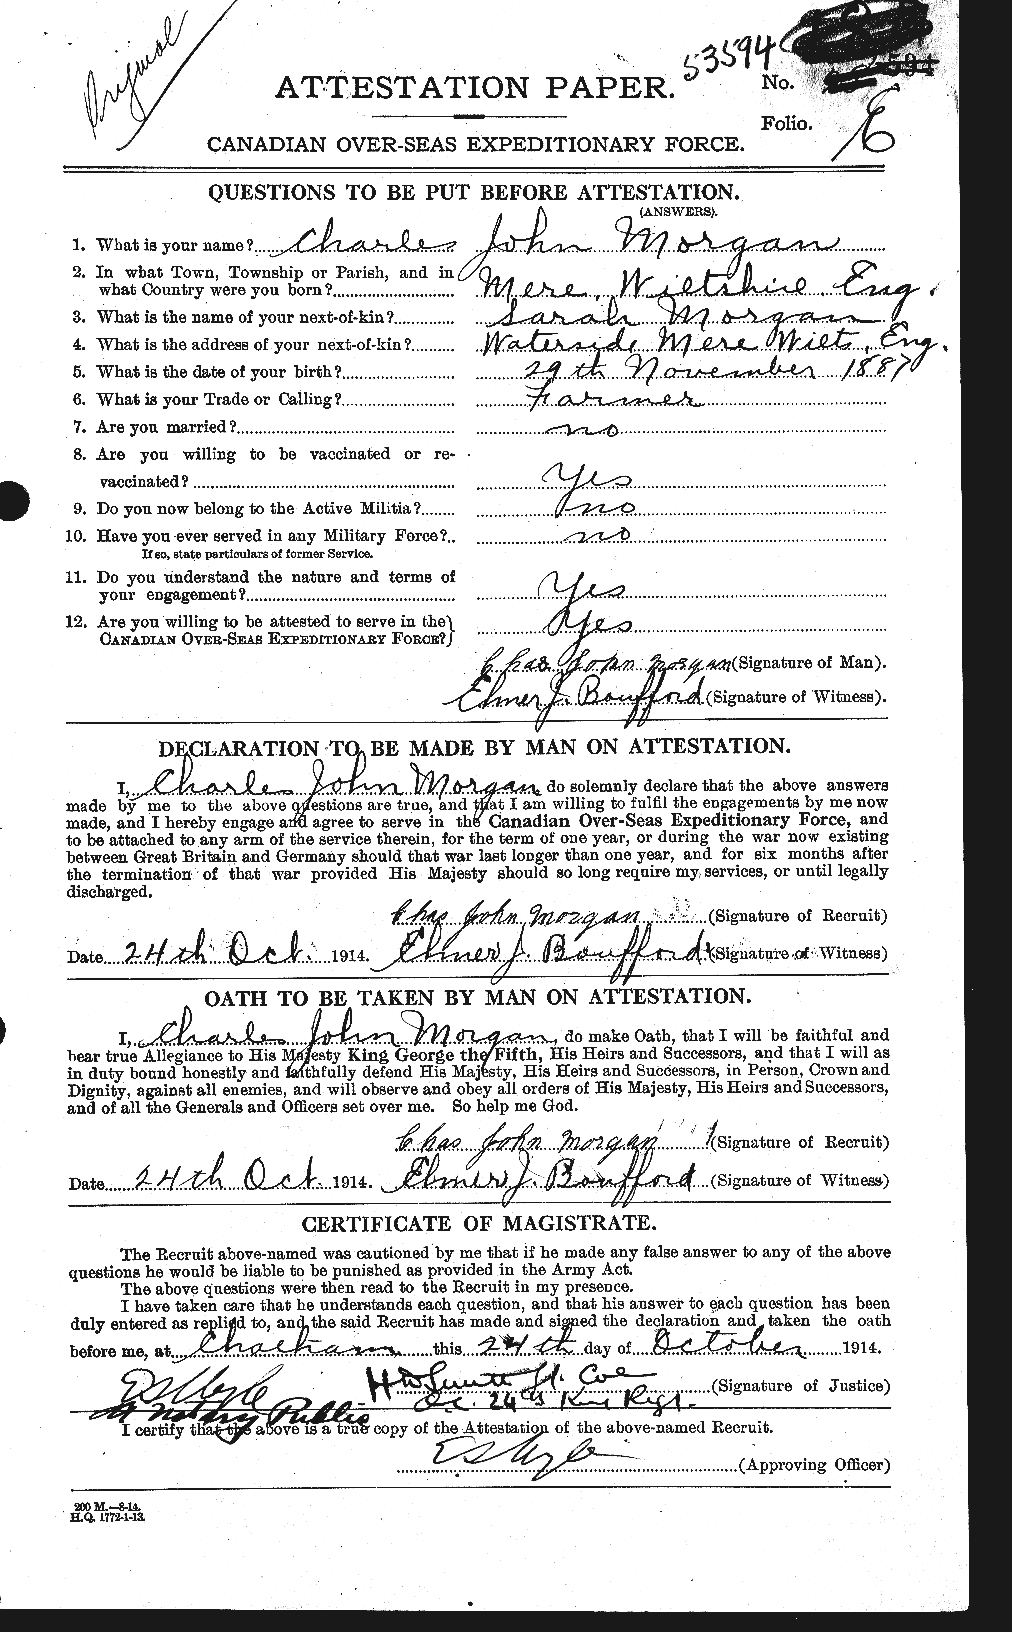 Original
53594
ATTESTATION PAPER. No.
Folio. E
CANADIAN OVER-SEAS EXPEDITIONARY FORCE.
QUESTIONS TO BE PUT BEFORE ATTESTATION.
(ANSWERS).
1. What is your name? Charles John Morgan
2. In what Town, Township or Parish, and in
what Country were you born? Mere, Wiltshire, Eng.
3. What is the name of your next-of-kin? Sarah Morgan
4. What is the address of your next-of-kin? Waterside Mere Wilts. Eng.
5. What is the date of your birth? 29th November 1887
6. What is your Trade or Calling? Farmer
7. Are you married? no
8. Are you willing to be vaccinated or re-
vaccinated? Yes
9. Do you now belong to the Active Militia? no
10. Have you ever served in any Military Force? no
If so, state particulars of former Service.
11. Do you understand the nature and terms of
your engagement? Yes
12. Are you willing to be attested to serve in the
CANADIAN OVER-SEAS EXPEDITIONARY FORCE? Yes
Chas John Morgan (Signature of Man).
Elmer J. Boufford (Signature of Witness).
DECLARATION TO BE MADE BY MAN ON ATTESTATION.
I, Charles John Morgan, do solemnly declare that the above answers
made by me to the above questions are true, and that I am willing to fulfil the engagements by me now
made, and I hereby engage and agree to serve in the Canadian Over-Seas Expeditionary Force, and
to be attached to any arm of the service therein, for the term of one year, or during the war now existing
between Great Britain and Germany should that war last longer than one year, and for six months after
the termination of that war provided His Majesty should so long require my services, or until legally
discharged.
Chas John Morgan (Signature of Recruit)
Date 24th Oct. 1914. Elmer J. Boufford (Signature of Witness)
OATH TO BE TAKEN BY MAN ON ATTESTATION.
I, Charles John Morgan, do make Oath, that I will be faithful and
bear true Allegiance to His Majesty King George the Fifth, His Heirs and Successors, and that I will as
in duty bound honestly and faithfully defend His Majesty, His Heirs and Successors, in Person, Crown and
Dignity, against all enemies, and will observe and obey all orders of His Majesty, His Heirs and Successors,
and of all the Generals and Officers set over me. So help me God.
Chas John Morgan (Signature of Recruit)
Date 24th Oct 1914. Elmer J. Boufford (Signature of Witness)
CERTIFICATE OF MAGISTRATE.
The Recruit above-named was cautioned by me that if he made any false answer to any of the above
questions he would be liable to be punished as provided in the Army Act.
The above questions were then read to the Recruit in my presence.
I have taken care that he understands each question, and that his answer to each question has been
duly entered as replied to, and the said Recruit has made and signed the declaration and taken the oath
before me, at Chatham this 24th day of October 1914.
Lt. Col (Signature of Justice)
A Notary Public O.C. 24th Regt.
I certify that the above is a true copy of the Attestation of the above-named Recruit.
(Approving Officer)
200 M.—8-14.
H.Q. 1772-1-13.